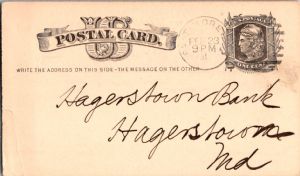 U S
POSTAL CARD.
WRITE THE ADDRESS ON THIS SIDE - THE MESSAGE ON THE OTHER
FEB 23
9 PM
POSTAGE
ONE CENT
Hagerstown Bank
Hagerstown
Md